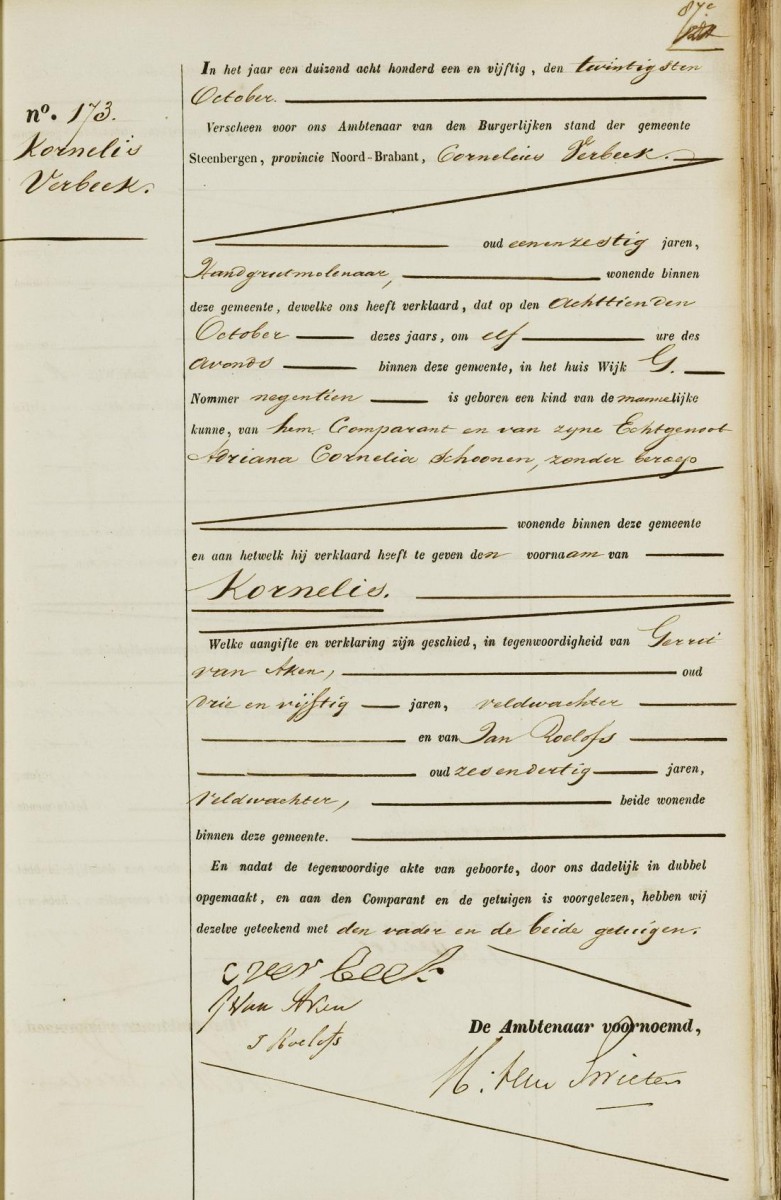 87e
nº. 173.
Kornelis
Verbeek.
In het jaar een duizend acht honderd een en vijftig, den twintigsten
October.
Verscheen voor ons Ambtenaar van den Burgerlijken stand der gemeente
Steenbergen, provincie Noord-Brabant, Cornelius Verbeek.
oud eenenzestig jaren,
Handgrutmolenaar, wonende binnen
deze gemeente, dewelke ons heeft verklaard, dat op den achttienden
October dezes jaars, om elf ure des
avonds binnen deze gemeente, in het huis Wijk G.
Nommer negentien is geboren een kind van de mannelijke
kunne, van hem Comparant en van zyne Echtgenoot
Adriana Cornelia Schoonen, zonder beroep
wonende binnen deze gemeente
en aan hetwelk hij verklaard heeft te geven den voornaam van
Kornelis.
Welke aangifte en verklaring zijn geschied, in tegenwoordigheid van Gerrit
van Aken, oud
drie en vijftig jaren, veldwachter
en van Jan Roelofs
oud zesendertig jaren,
Veldwachter, beide wonende
binnen deze gemeente.
En nadat de tegenwoordige akte van geboorte, door ons dadelijk in dubbel
opgemaakt, en aan den Comparant en de getuigen is voorgelezen, hebben wij
dezelve geteekend met den vader en de beide getuigen.
C verbeek
G Van Aken
J Roelofs
De Ambtenaar voornoemd,